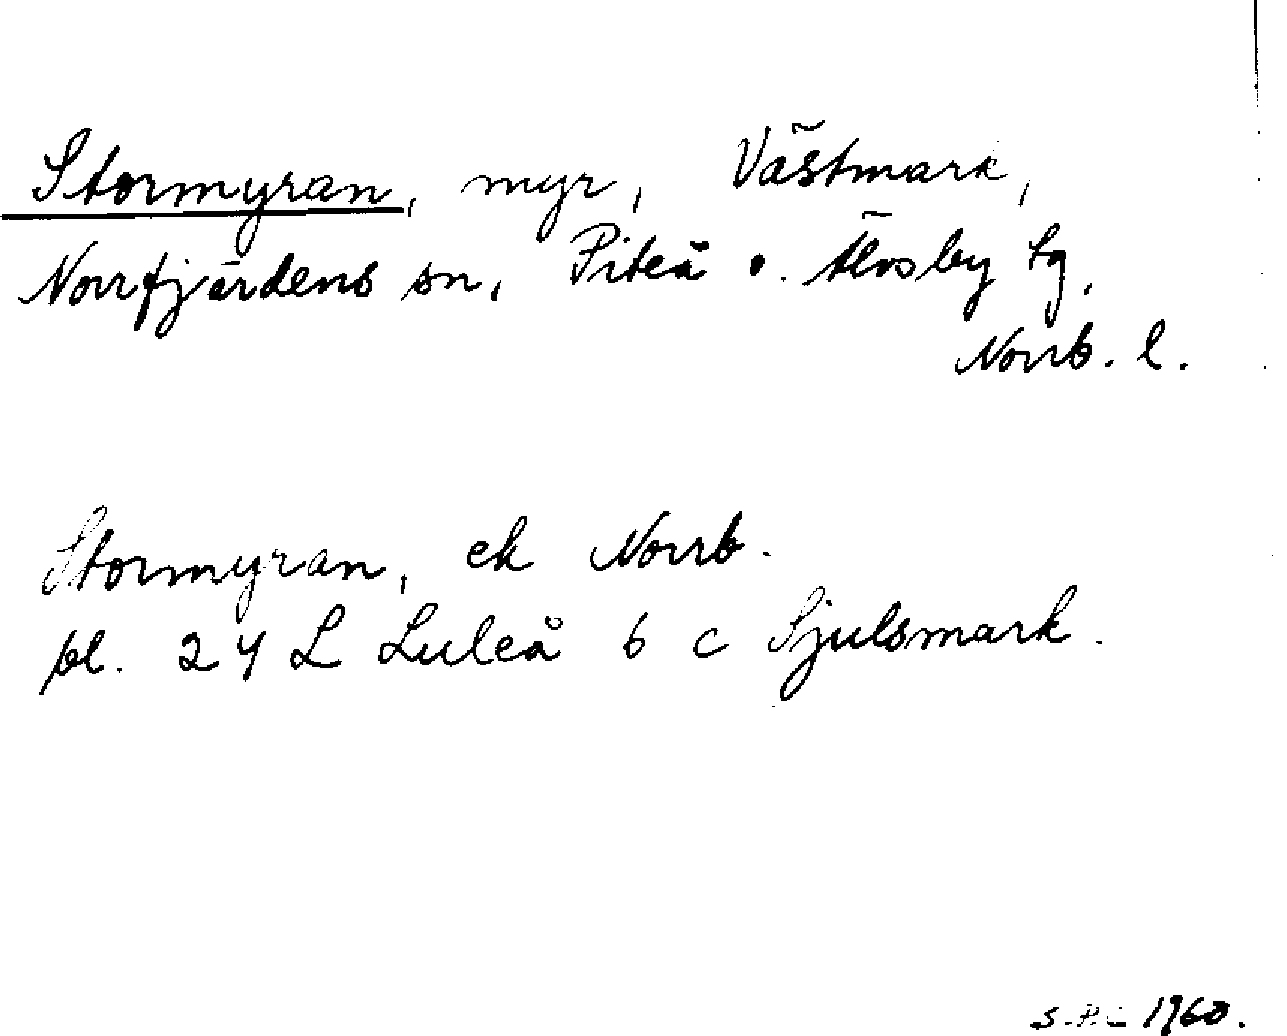 Stormyran, myr, Västmark,
Norrfjärdens sn, Piteå o. Älvsby tg,
Norrb. l.
Stormyran, ek Norrb.
bl. 24 L Luleå 6 c Sjulsmark.
1960.